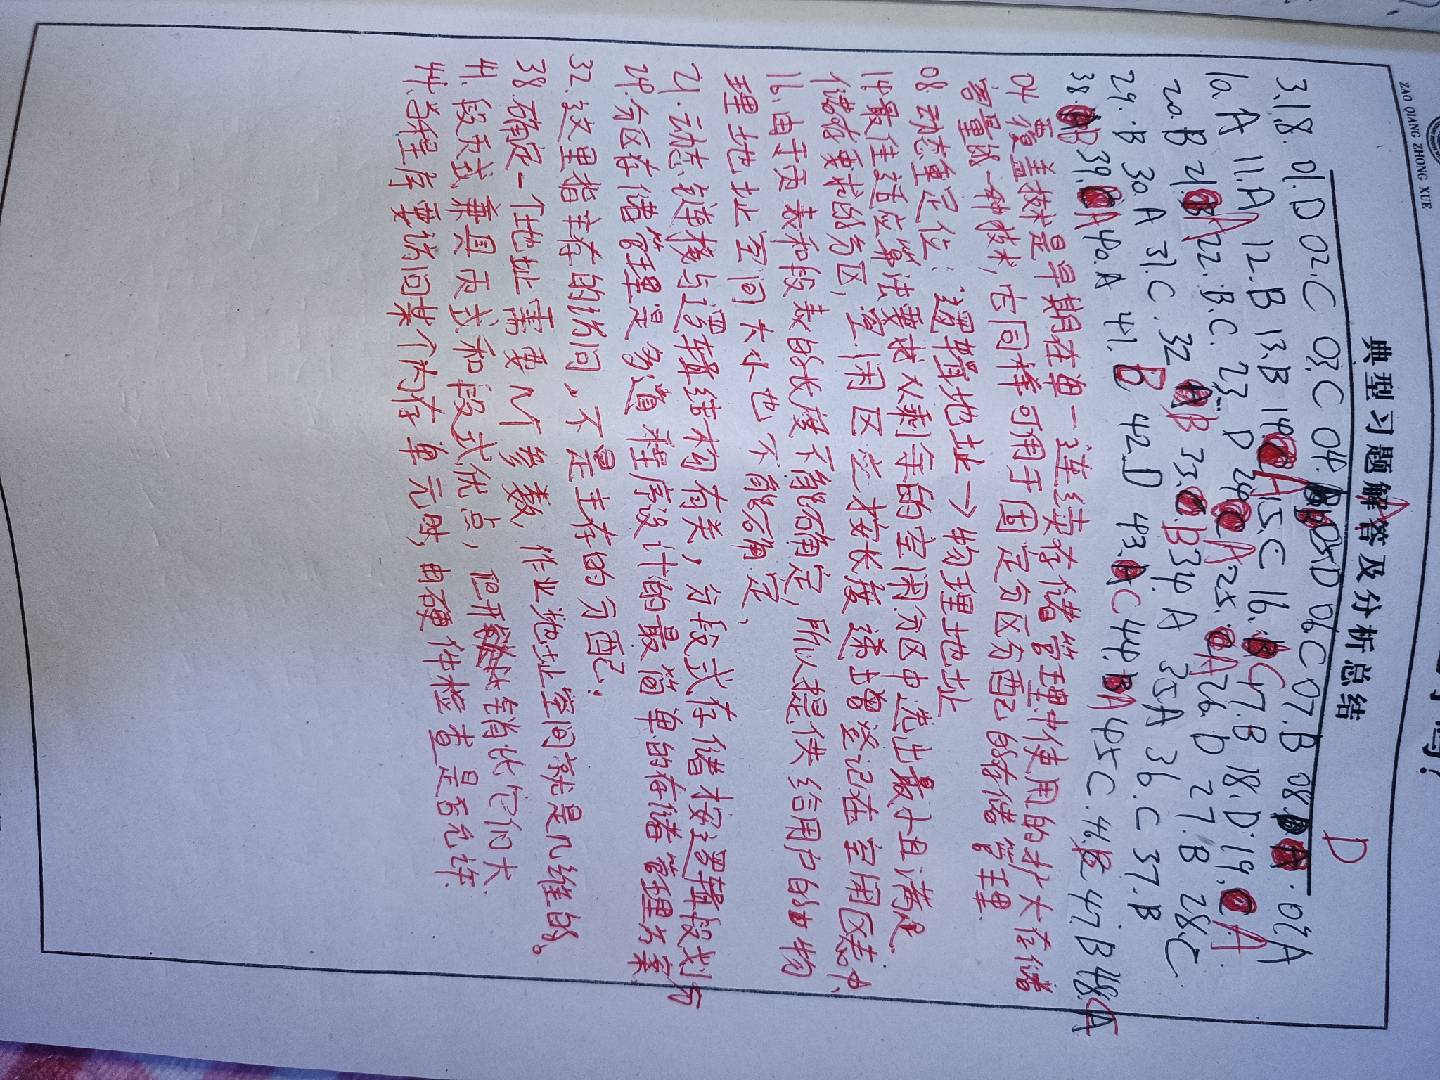 ZAO QIANG ZHONG XUE
吗?
典型习题解答及分析总结
3.1.8. 01.D 02.C 03.C 04. A 05.D 06.C 07.B 08. D 09.A
10.A 11.A 12.B 13.B 14. A 15.C 16. C 17.B 18.D 19. A
20.B 21. A 22.B.C. 23. D 24. A 25. A 26.D 27.B 28.C
29.B 30.A 31.C 32 B 33. B 34.A 35A 36.C 37.B.
38. B 39. A 40.A 41. B 42.D 43. C 44. A 45C. 46. 47.B 48. A
04 覆盖技术是早期在单一连续存储管理中使用的扩大存储
容量的一种技术,它同样可用于固定分区分配的存储管理.
08 动态重定位:逻辑地址→物理地址
14最佳适应算法要求从剩余的空闲分区中选出最小且满足
储存要求的分区,空闲区应按长度递增登记在空闲区表中.
16.由于页表和段表的长度不能确定,所以提供给用户的物
理地址空间大小也不能确定、
21.动态链接与逻辑结构有关,分段式存储按逻辑段划分
24.分区存储管理是多道程序设计的最简单的存储管理方案
32.这里指主存的访问,不是主存的分配.
38.确定一个地址需要几个参数,作业地址空间就是几维的。
41.段页式兼具页式和段式优点,但开销比它们大.
44.当程序要访问某个内存单元时,由硬件检查是否允许.